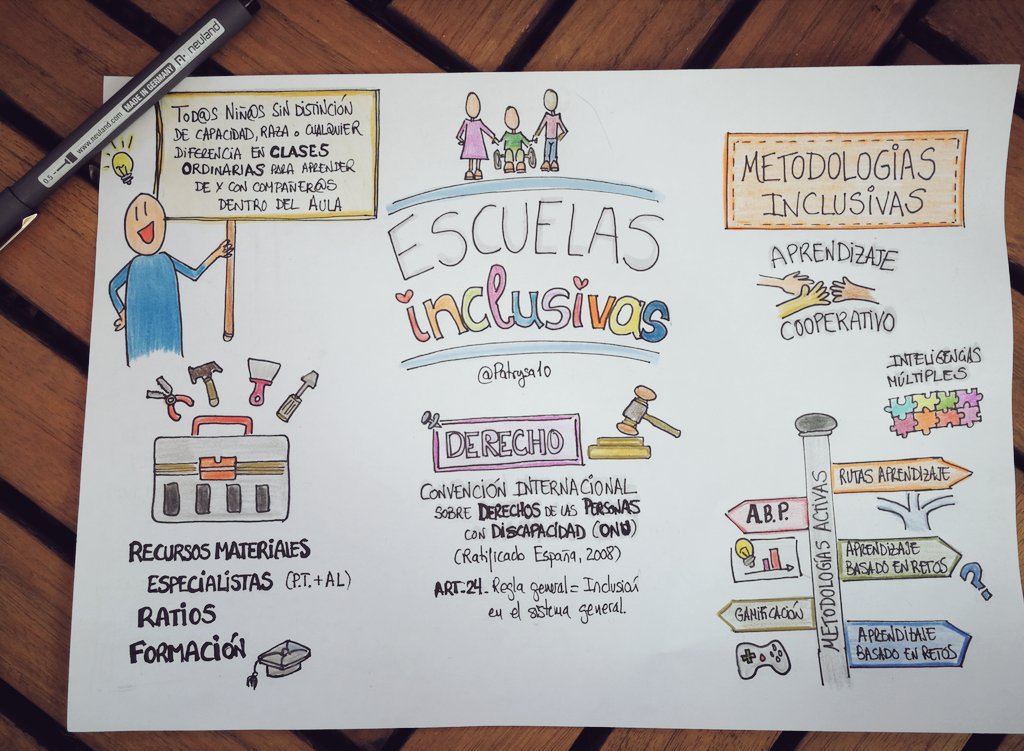 neuland
MADE IN GERMANY
www.neuland.com
0.5
TOD@S NIÑ@S SIN DISTINCIÓN
DE CAPACIDAD, RAZA O CUALQUIER
DIFERENCIA EN CLASES
ORDINARIAS PARA APRENDER
DE Y CON COMPAÑER@S
DENTRO DEL AULA
ESCUELAS
inclusivas
@Patrysa10
METODOLOGÍAS
INCLUSIVAS
APRENDIZAJE
COOPERATIVO
INTELIGENCIAS
MÚLTIPLES
DERECHO
CONVENCIÓN INTERNACIONAL
SOBRE DERECHOS DE LAS PERSONAS
CON DISCAPACIDAD (ONU)
(Ratificado España, 2008)
ART-24. Regla general = Inclusión
en el sistema general.
RECURSOS MATERIALES
ESPECIALISTAS (P.T. + AL)
RATIOS
FORMACIÓN
METODOLOGÍAS ACTIVAS
RUTAS APRENDIZAJE
A.B.P.
APRENDIZAJE
BASADO EN RETOS
?
GAMIFICACIÓN
APRENDIZAJE
BASADO EN RETOS